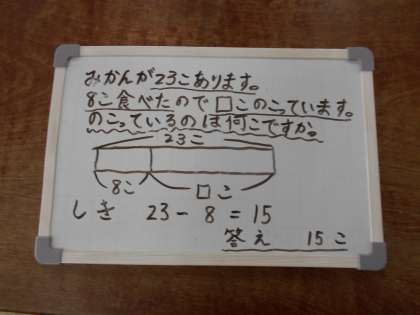 みかんが23こあります。
8こ食べたので□このこっています。
のこっているのは何こですか。
23こ
8こ □こ
しき 23－8＝15
答え 15こ